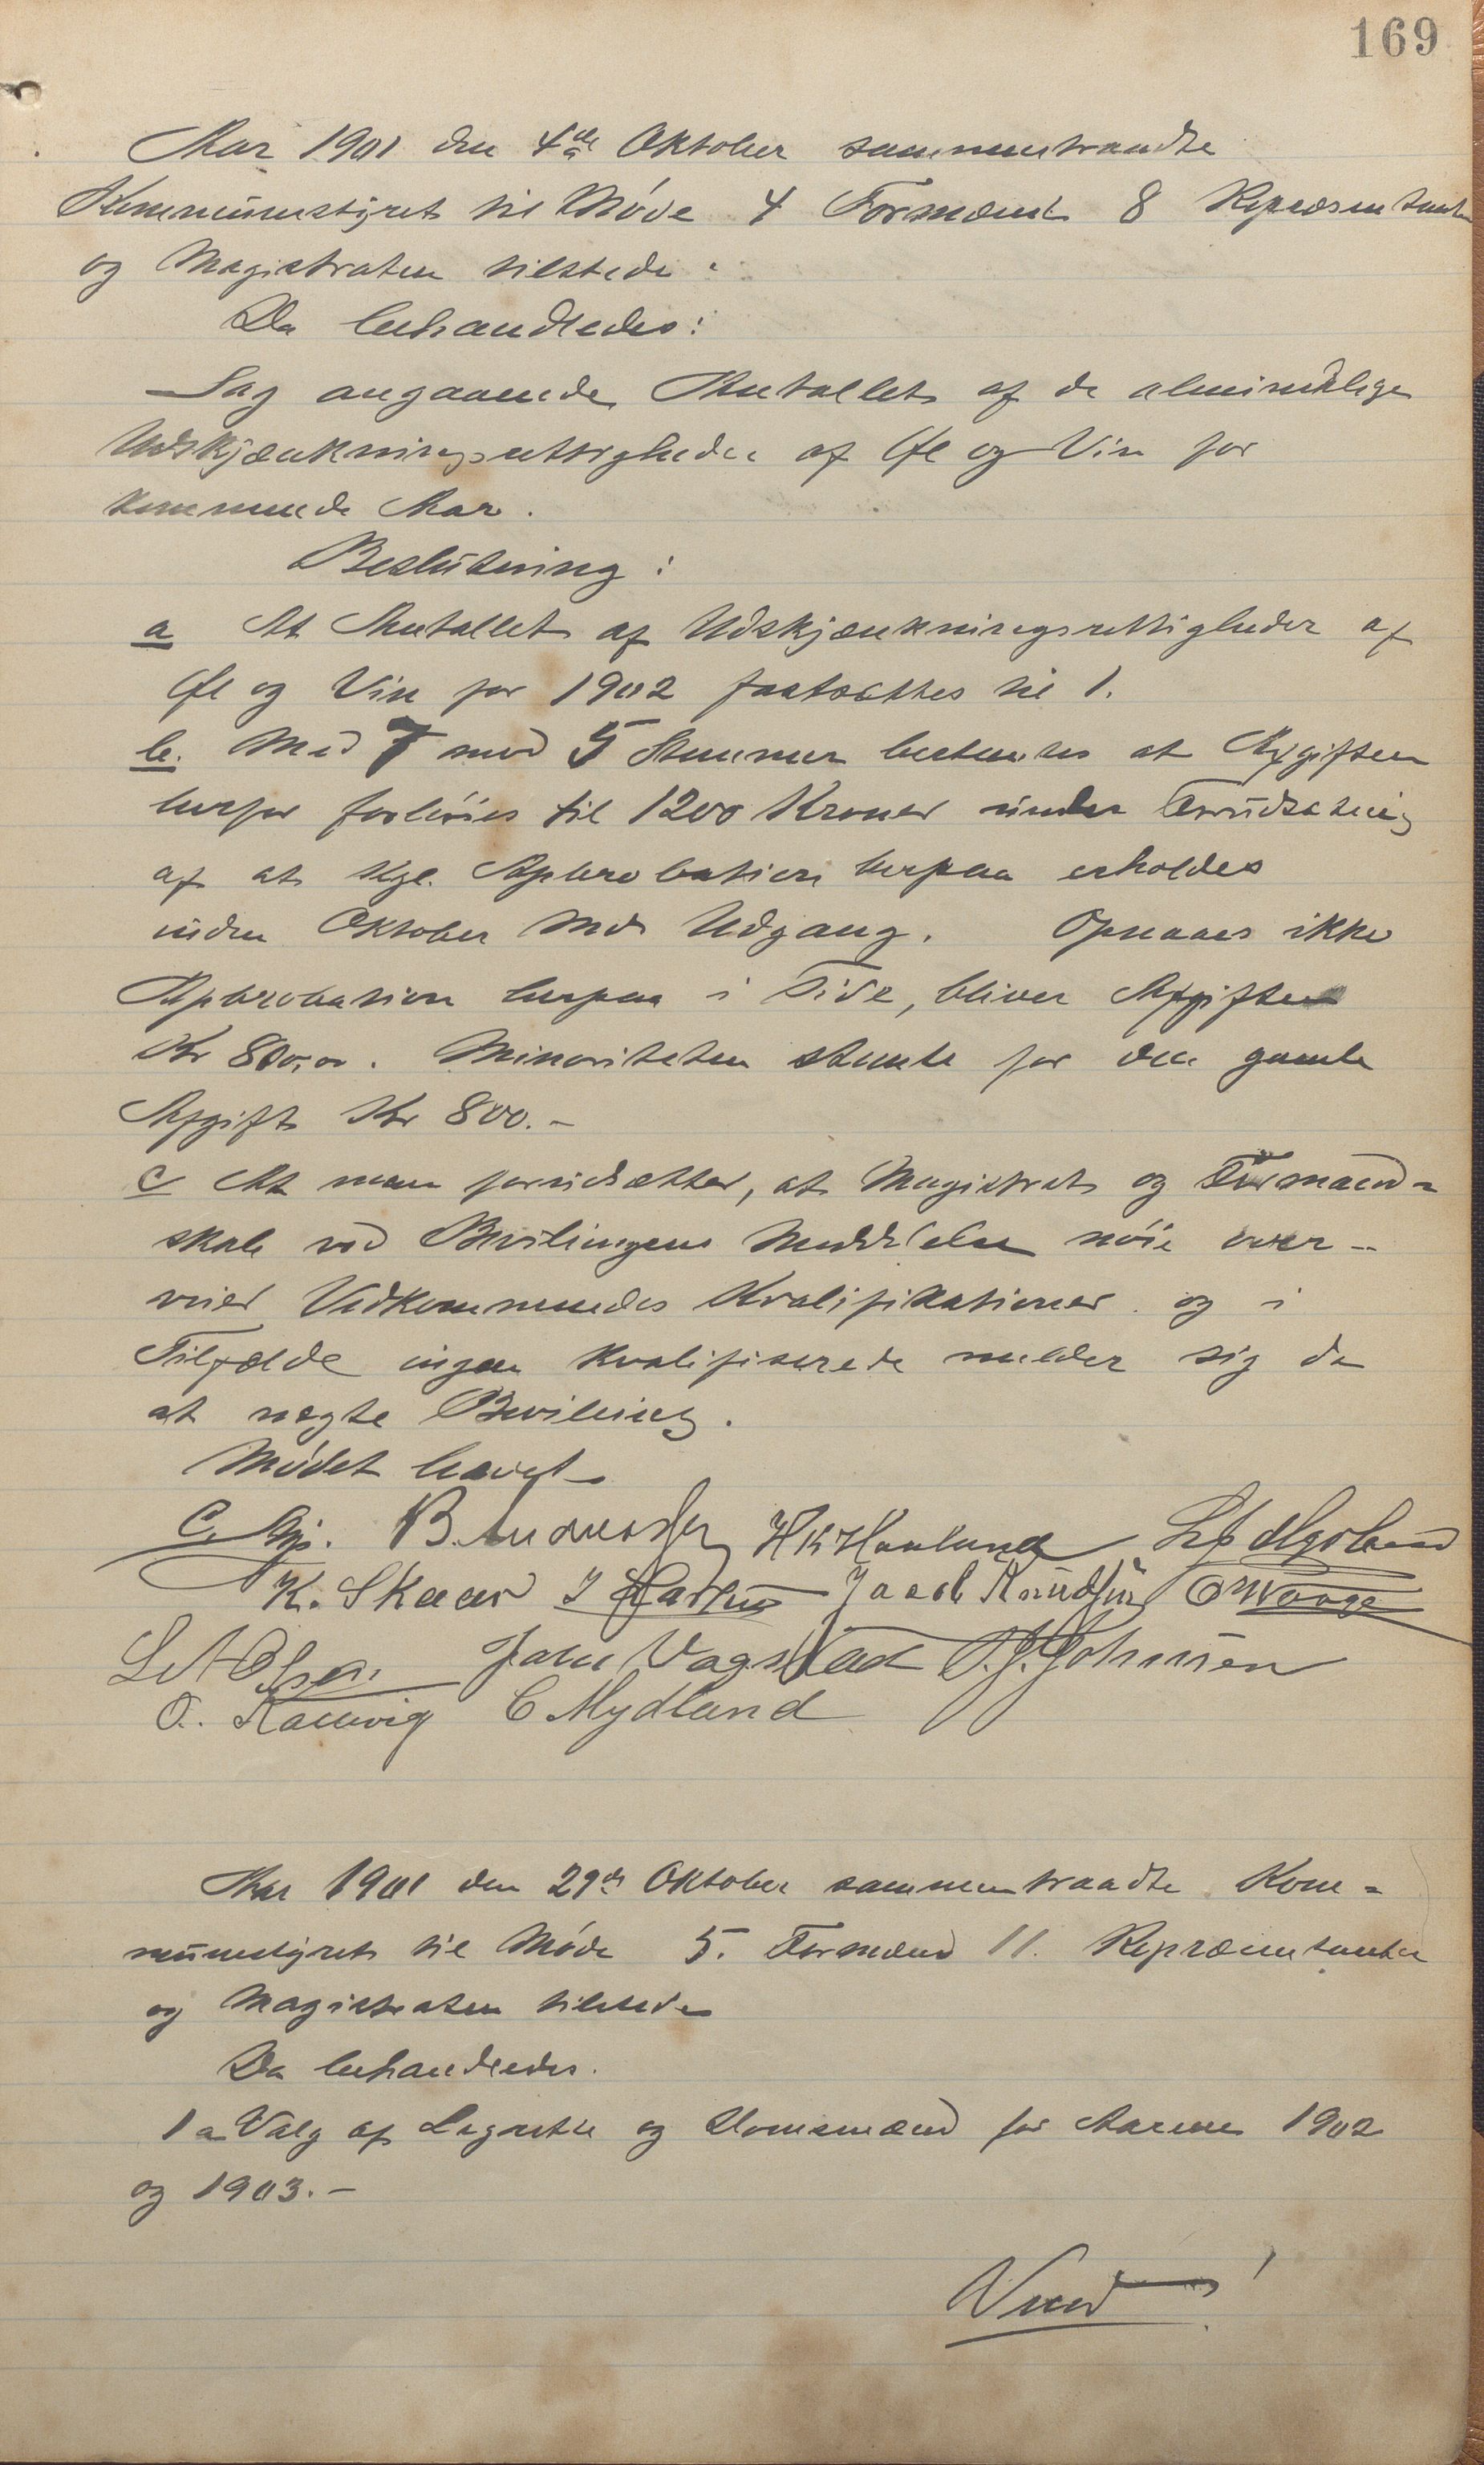 169
Aar 1901 den 4de Oktober sammentraadte
Kommunestyret til Møde 4 Formænd 8 Repræsentanter
og Magistraten tilstede:
Da behandledes:
Sag angaaende Antallet af de almindelige
Udskjænkningsrettigheder af Øl og Vin for
kommende Aar.
Beslutning:
a At Antallet af Udskjænkningsrettigheder af
Øl og Vin for 1902 fastsættes til 1.
b. Med 7 mod 5 Stemmer bestemtes at Afgiften
herfor forhøies til 1200 Kroner under Forudsætning
af at Kgl. Approbation herpaa erholdes
inden Oktober Mds Udgang. Opnaaes ikke
Approbation herpaa i Tide, bliver Afgiften
Kr 800,00. Minoriteten stemte for den gamle
Afgift Kr 800.-
c At man forudsætter, at Magistrat og Formænd-
skab ved Bevilingens Meddelelse nöie over-
veier Vedkommendes Kvalifikationer og i
Tilfælde ingen kvalifiserede melder sig da
at nægte Beviling.
Mødet hævet
B. H K Haaland
K. Skaar Jacob Knudsen O Waage
John Vagstad J. J. Johnsen
O. Rønnevig C Mydland
Aar 1901 den 29de Oktober sammentraadte Kom-
munestyret til Møde 5. Formænd 11. Repræsentanter
og Magistraten tilstede
Da behandledes.
1 a Valg af Lagrette og Domsmænd for Aarene 1902
og 1903.-
Vend!